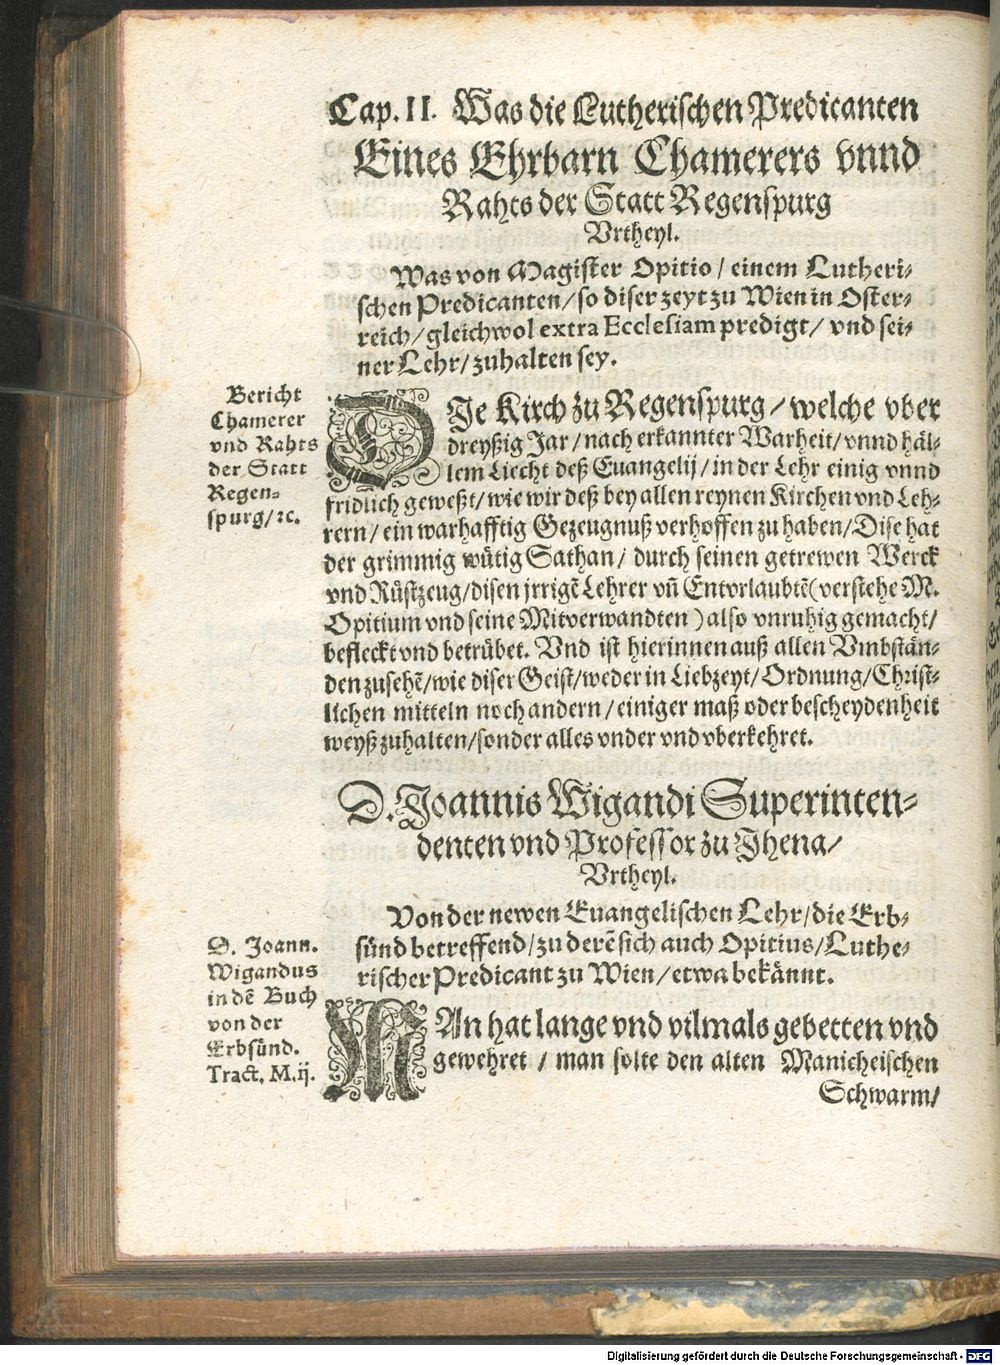 Cap. II. Was die Lutherischen Predicanten
Eines Ehrbarn Chamerers vnnd
Rahts der Statt Regenspurg
Vrtheyl.
Was von Magister Opitio / einem Lutheri-
schen Predicanten / so diser zeyt zu Wien in Oster-
reich / gleichwol extra Ecclesiam predigt / vnd sei-
ner Lehr / zuhalten sey.
Bericht
Chamerer
vnd Rahts
der Statt
Regen-
spurg / ꝛc.
DIe Kirch zu Regenspurg / welche vber
dreyßig Jar / nach erkannter Warheit / vnnd häl-
lem Liecht deß Euangelij / in der Lehr einig vnnd
fridlich geweßt / wie wir deß bey allen reynen Kirchen vnd Leh-
rern / ein warhafftig Gezeugnuß verhoffen zu haben / Dise hat
der grimmig wütig Sathan / durch seinen getrewen Werck
vnd Rüstzeug / disen jrrigẽ Lehrer vñ Entvrlaubtẽ (verstehe M.
Opitium vnd seine Mitverwandten) also vnruhig gemacht /
befleckt vnd betrübet. Vnd ist hierinnen auß allen Vmbstän-
den zusehẽ / wie diser Geist / weder in Liebzeyt / Ordnung / Christ-
lichen mitteln noch andern / einiger maß oder bescheydenheit
weyß zuhalten / sonder alles vnder vnd vberkehret.
D. Joannis Wigandi Superinten-
denten vnd Professor zu Jhena /
Vrtheyl.
Von der newen Euangelischen Lehr / die Erb-
sünd betreffend / zu derẽ sich auch Opitius / Luthe-
rischer Predicant zu Wien / etwa bekännt.
D. Joann.
Wigandus
in dẽ Buch
von der
Erbsünd.
Tract. M.ij.
MAn hat lange vnd vilmals gebetten vnd
gewehret / man solte den alten Manicheischen
Schwarm /
Digitalisierung gefördert durch die Deutsche Forschungsgemeinschaft - DFG